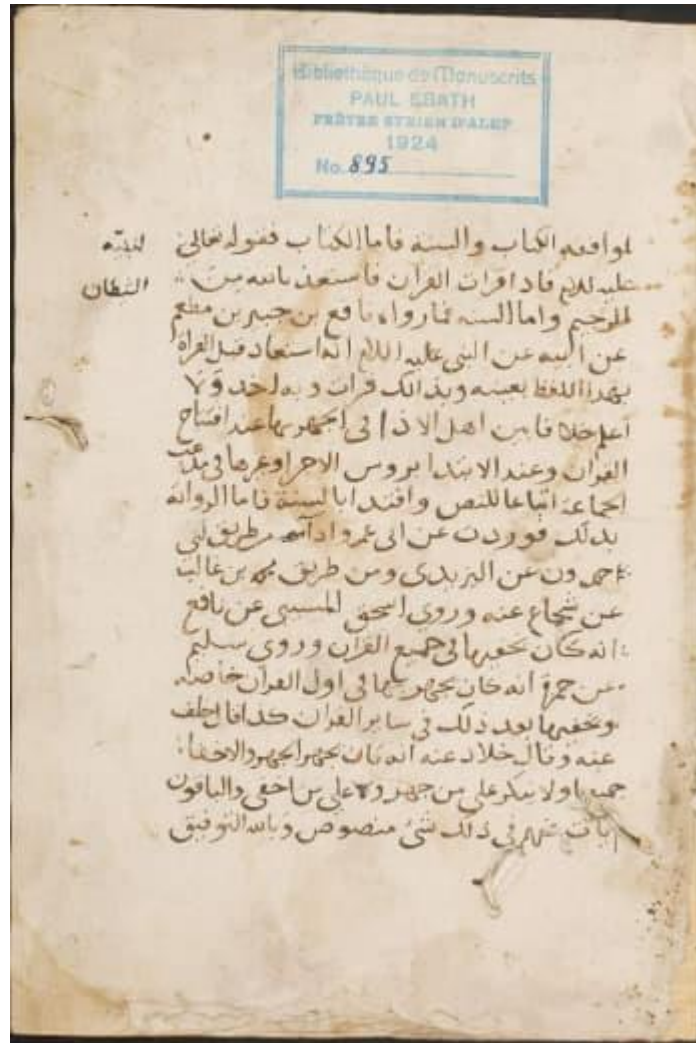 Bibliothèque de Manuscrits
PAUL SBATH
PRÊTRE SYRIEN D'ALEP
1924
No. 895
لموافقه الكتاب والسنة فاما الكتاب فقوله تعالى لنبيه
عليه السلام فاذا قرات القران فاستعذ بالله من الشيطان
الرجيم واما السنه فما رواه نافع بن جبير بن مطعم
عن ابيه عن النبي عليه السلام انه استعاذ قبل القراة
بهذا اللفظ بعينه وبذالك قرات وبه اخذ ولا
اعلم خلافا بين اهل الاداء في الجهر بها عند افتتاح
القران وعند الابتدا بروس الاجزا وغيرها في مذهب
الجماعة اتباعا للنص واقتدا بالسنة فاما الرواية
بذلك فوردت عن ابي عمرو اداء من طريق ابي
حمدون عن اليزيدى ومن طريق محمد بن غالب
عن شجاع عنه وروى اسحق المسيبى عن نافع
انه كان يخفيها فى جميع القران وروى سليم
عن حمزة انه كان يجهر بها فى اول القران خاصة
ويخفيها بعد ذلك فى ساير القران كذا قال خلف
عنه وقال خلاد عنه انه كان يجيز الجهر والاخفا
جميعا ولا ينكر على من جهر ولا على من اخفى والباقون
لم يات عنهم فى ذلك شئ منصوص وبالله التوفيق